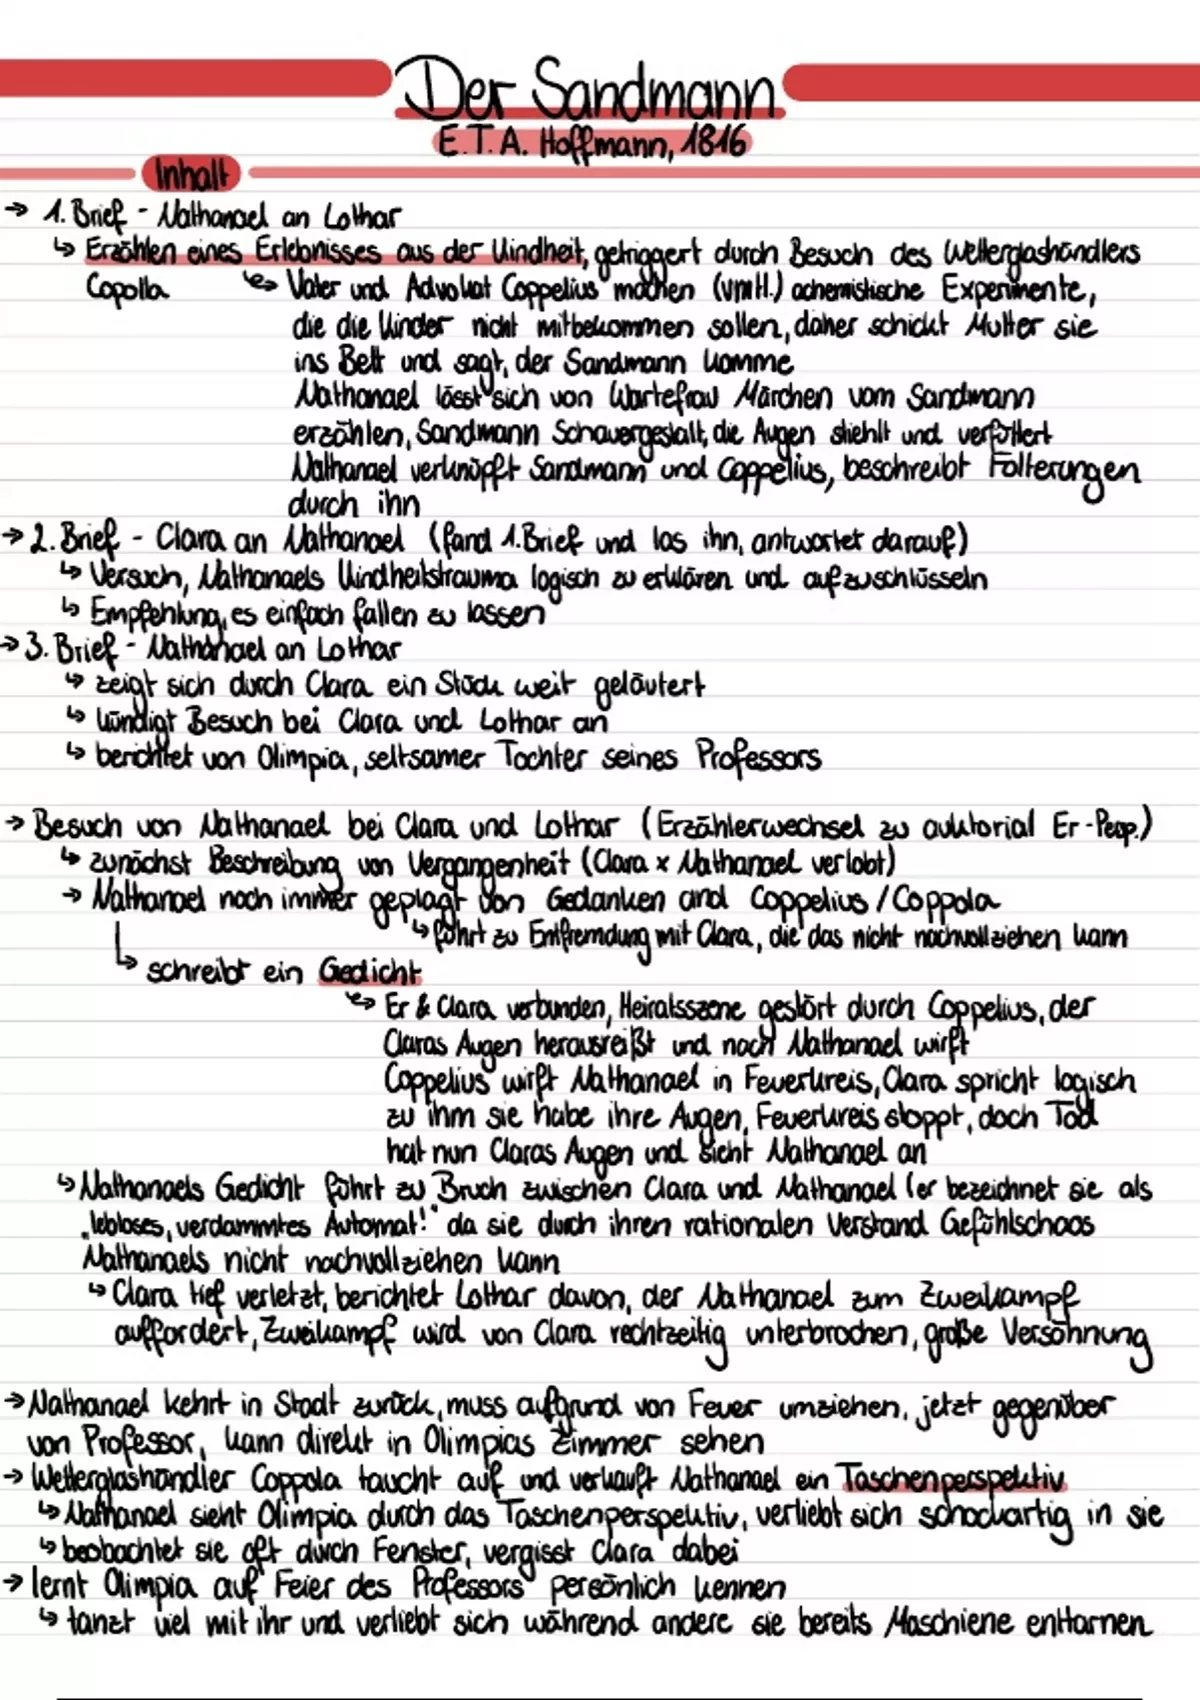 Der Sandmann
E.T.A. Hoffmann, 1816
Inhalt
→ 1. Brief - Nathanael an Lothar
↳ Erzählen eines Erlebnisses aus der Kindheit, getriggert durch Besuch des Wetterglashändlers
Copolla ↳ Vater und Advokat Coppelius machen (vmtl.) achemistische Experimente,
die die Kinder nicht mitbekommen sollen, daher schickt Mutter sie
ins Bett und sagt, der Sandmann komme
Nathanael lässt sich von Wartefrau Märchen vom Sandmann
erzählen, Sandmann Schauergestalt, die Augen stiehlt und verfüttert
Nathanael verknüpft Sandmann und Coppelius, beschreibt Folterungen
durch ihn
→ 2. Brief - Clara an Nathanael (fand 1. Brief und las ihn, antwortet darauf)
↳ Versuch, Nathanaels Kindheitstrauma logisch zu erklären und aufzuschlüsseln
↳ Empfehlung, es einfach fallen zu lassen
→ 3. Brief - Nathanael an Lothar
↳ zeigt sich durch Clara ein Stück weit geläutert
↳ kündigt Besuch bei Clara und Lothar an
↳ berichtet von Olimpia, seltsamer Tochter seines Professors
→ Besuch von Nathanael bei Clara und Lothar (Erzählerwechsel zu auktorial Er-Persp.)
↳ zunächst Beschreibung von Vergangenheit (Clara x Nathanael verlobt)
→ Nathanael noch immer geplagt von Gedanken and Coppelius / Coppola
↳ führt zu Entfremdung mit Clara, die das nicht nachvollziehen kann
↳ schreibt ein Gedicht
↳ Er & Clara verbunden, Heiratsszene gestört durch Coppelius, der
Claras Augen herausreißt und nach Nathanael wirft
Coppelius wirft Nathanael in Feuerkreis, Clara spricht logisch
zu ihm sie habe ihre Augen, Feuerkreis stoppt, doch Tod
hat nun Claras Augen und sieht Nathanael an
↳ Nathanaels Gedicht führt zu Bruch zwischen Clara und Nathanael (er bezeichnet sie als
„lebloses, verdammtes Automat!" da sie duch ihren rationalen Verstand Gefühlschaos
Nathanaels nicht nachvollziehen kann
↳ Clara tief verletzt, berichtet Lothar davon, der Nathanael zum Zweikampf
auffordert, Zweikampf wird von Clara rechtzeitig unterbrochen, große Versöhnung
→ Nathanael kehrt in Stadt zurück, muss aufgrund von Feuer umziehen, jetzt gegenüber
von Professor, kann direkt in Olimpias Zimmer sehen
→ Wetterglashändler Coppola taucht auf und verkauft Nathanael ein Taschenperspektiv
↳ Nathanael sieht Olimpia durch das Taschenperspektiv, verliebt sich schockartig in sie
↳ beobachtet sie oft durch Fenster, vergisst Clara dabei
→ lernt Olimpia auf Feier des Professors persönlich kennen
↳ tanzt viel mit ihr und verliebt sich während andere sie bereits Maschiene enttarnen